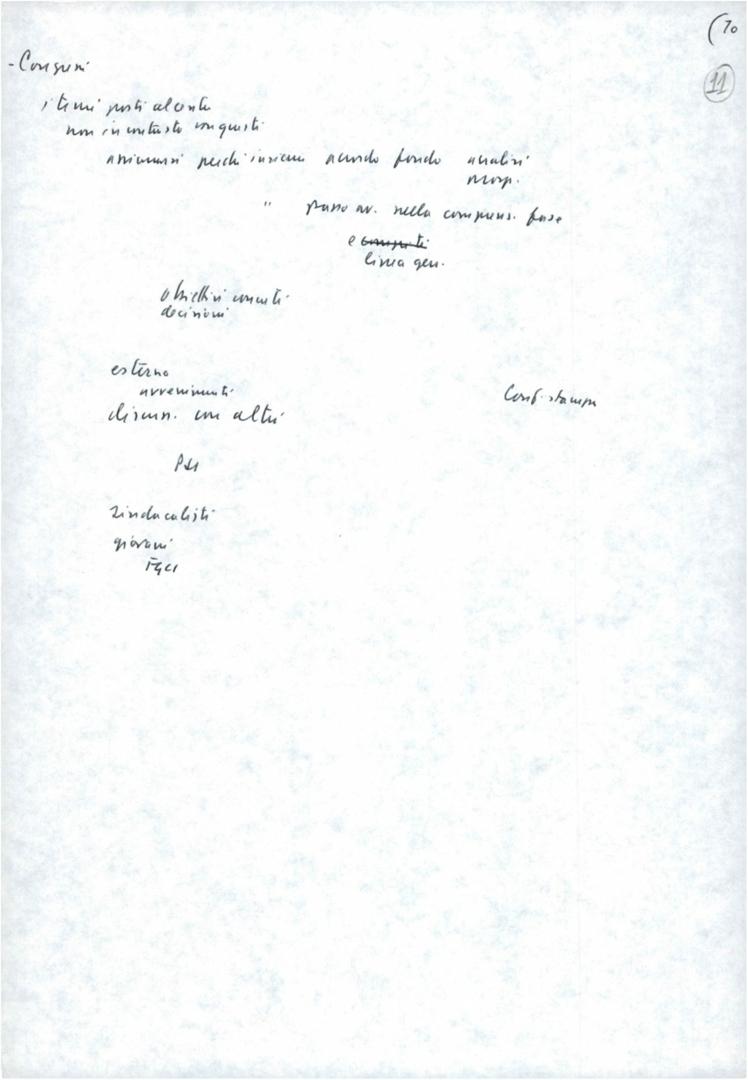 (70
11
- Congressi
i temi posti al centro
non in contrasto con questi
assicurarsi perché insieme accordo fondo analisi
prosp.
" passo av. nella comprens. fase
e compiti
linea gen.
obiettivi concreti
decisioni
esterno
avvenimenti
Conf. stampa
discuss. con altri
PSI
sindacalisti
giovani
FGCI